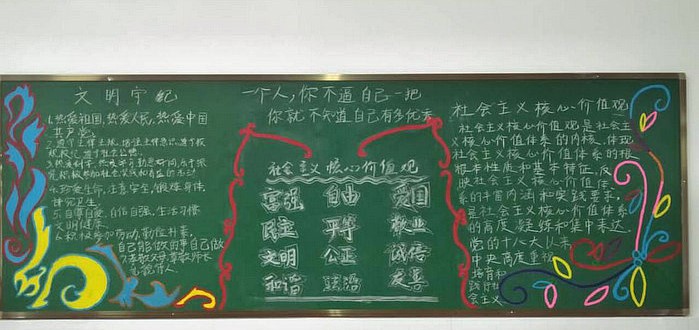 文明守纪
1.热爱祖国,热爱人民,热爱中国
共产党。
4.珍爱生命,注意安全,锻炼身体,
讲究卫生。
5.自尊自爱,自信自强,生活习惯
文明健康。
6.积极参加劳动,勤俭朴素,
自己能做的事自己做
一个人,你不逼自己一把
你就不知道自己有多优秀
社会主义核心价值观
富强 自由 爱国
民主 平等 敬业
文明 公正 诚信
和谐 法治 友善
社会主义核心价值观
社会主义核心价值观是社会主
义核心价值体系的内核,体现
社会主义核心价值体系的根
本性质和基本特征,反
映社会主义核心价值体
系的丰富内涵和实践要求,
是社会主义核心价值体系
的高度凝练和集中表达。
党的十八大以来,
中央高度重视
培育和
践行社
会主义